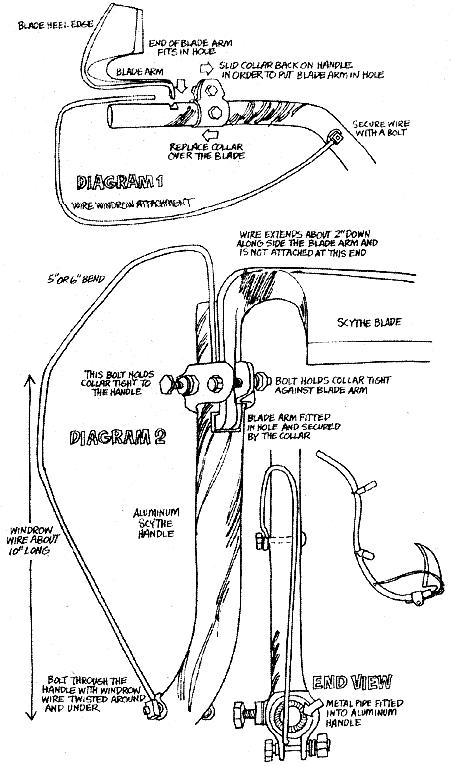 BLADE HEEL EDGE
END OF BLADE ARM
FITS IN HOLE
BLADE ARM
SLID COLLAR BACK ON HANDLE
IN ORDER TO PUT BLADE ARM IN HOLE
SECURE WIRE
WITH A BOLT
REPLACE COLLAR
OVER THE BLADE
DIAGRAM 1
WIRE WINDROW ATTACHMENT
WIRE EXTENDS ABOUT 2" DOWN
ALONG SIDE THE BLADE ARM AND
IS NOT ATTACHED AT THIS END
5" OR 6" BEND
SCYTHE BLADE
THIS BOLT HOLDS
COLLAR TIGHT TO
THE HANDLE
BOLT HOLDS COLLAR TIGHT
AGAINST BLADE ARM
BLADE ARM FITTED
IN HOLE AND SECURED
BY THE COLLAR
DIAGRAM 2
ALUMINUM
SCYTHE
HANDLE
WINDROW
WIRE ABOUT
10" LONG
BOLT THROUGH THE
HANDLE WITH WINDROW
WIRE TWISTED AROUND
AND UNDER
END VIEW
METAL PIPE FITTED
INTO ALUMINUM
HANDLE